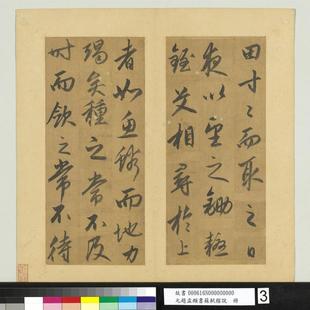 田寸〻而取之日
夜以望之鋤耰
銍艾相尋於上
者如魚鱗而地力
竭矣種之常不及
時而斂之常不待
故書 000616N000000000
元趙孟頫書蘇軾稼說 冊
3